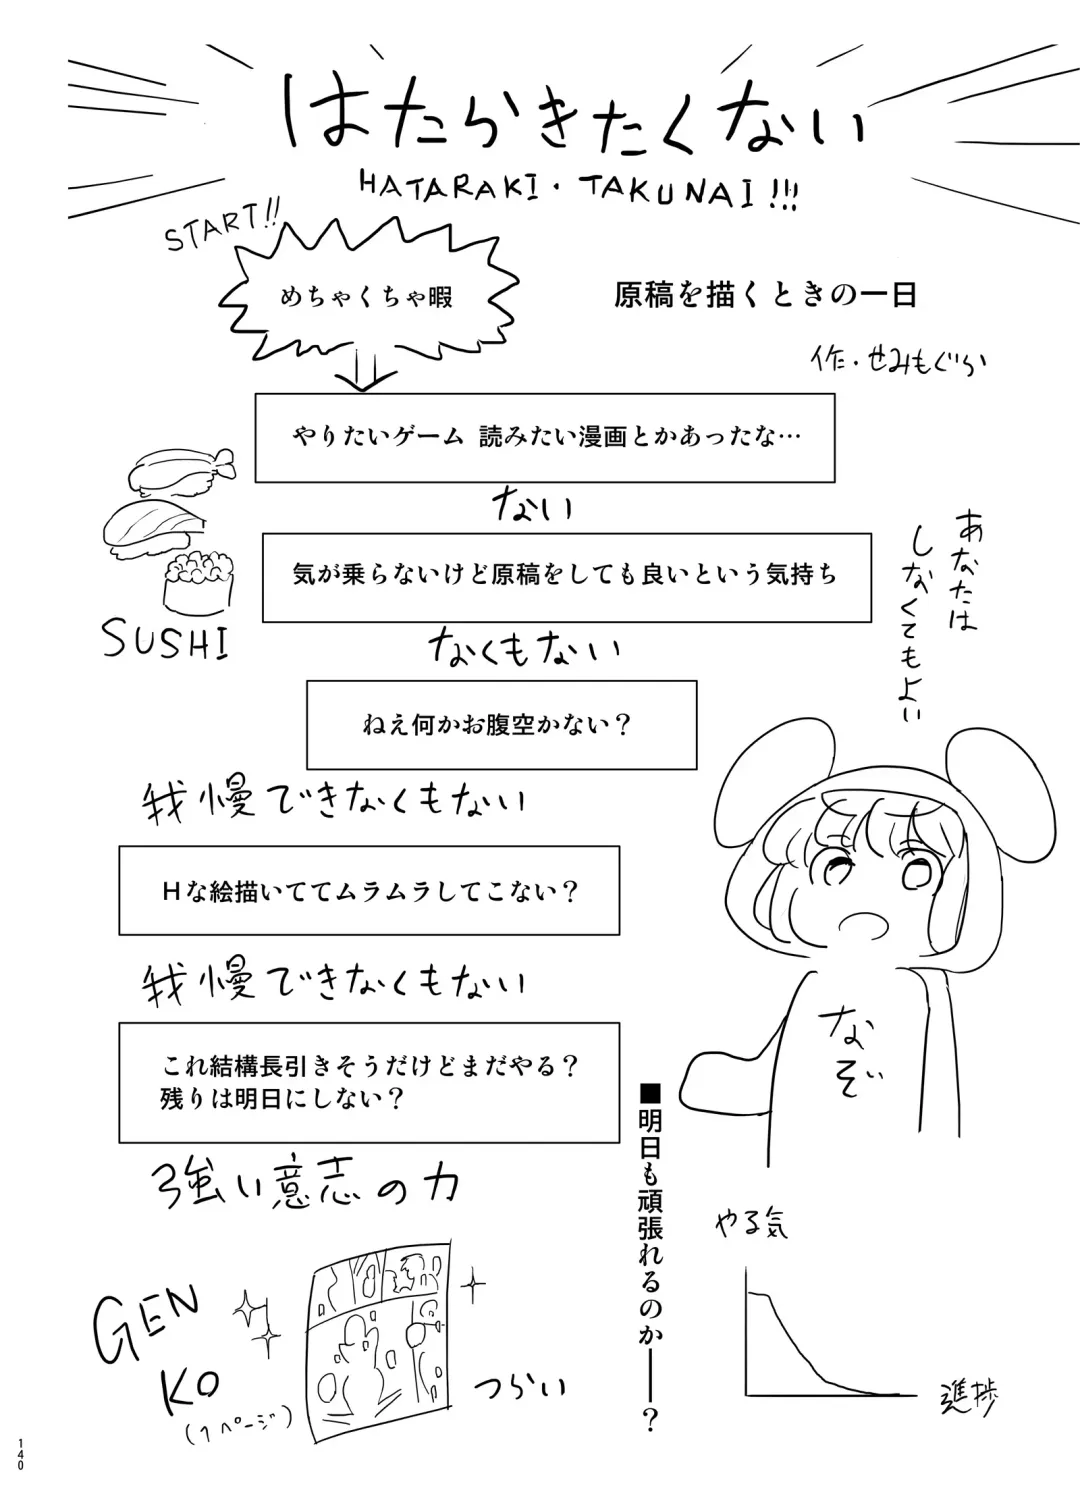 はたらきたくない
HATARAKI・TAKUNAI!!!
START!!
めちゃくちゃ暇
原稿を描くときの一日
作・せみもぐら
やりたいゲーム 読みたい漫画とかあったな…
ない
気が乗らないけど原稿をしても良いという気持ち
なくもない
SUSHI
あなたは
しなくてもよい
ねえ何かお腹空かない?
我慢できなくもない
Hな絵描いててムラムラしてこない?
我慢できなくもない
これ結構長引きそうだけどまだやる?
残りは明日にしない?
強い意志の力
なぞぃ
■明日も頑張れるのか――?
やる気
進捗
GEN
KO
(1ページ)
つらい
140